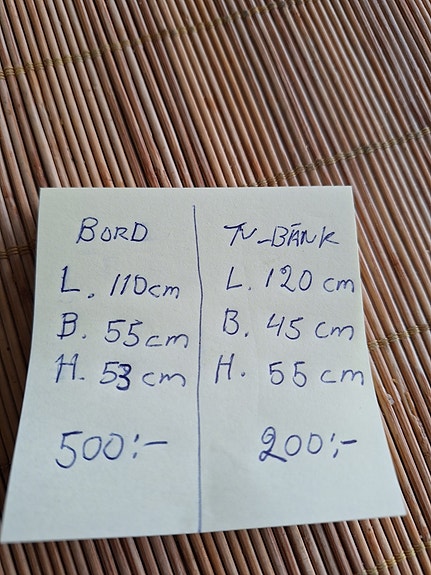 BORD
L. 110cm
B. 55 cm
H. 53 cm
500:-
TV-BÄNK
L. 120 cm
B. 45 cm
H. 55 cm
200:-